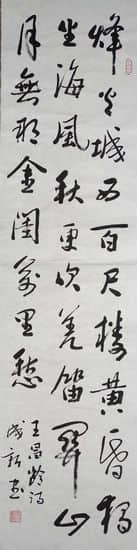 烽火城西百尺樓黄昏獨
坐海風秋更吹羌笛關山
月無那金閨萬里愁
王昌齡詩